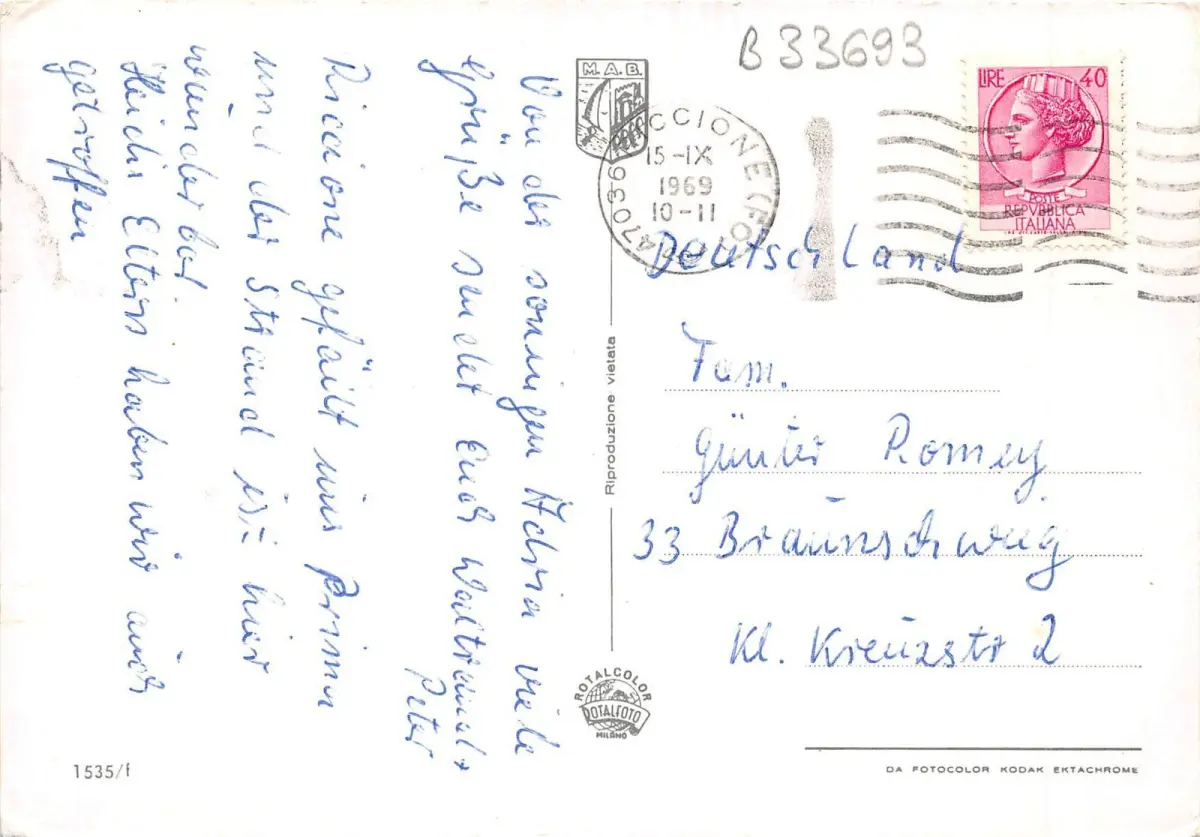 B 33693
M.A.B.
47036 RICCIONE (FO)
15-IX
1969
10-11
LIRE 40
POSTE
REPVBBLICA
ITALIANA
Von der sonnigen Adria viele
Grüße sendet Euch Waltraud +
Peter
Riccione gefällt uns Prima
und der Strand ist hier
wunderbar.
Heidis Eltern haben wir auch
getroffen
Deutschland
Fam.
Günter Romey
33 Braunschweig
Kl. Kreuzstr 2
Riproduzione vietata
ROTALCOLOR
ROTALFOTO
MILANO
1535/f
DA FOTOCOLOR KODAK EKTACHROME